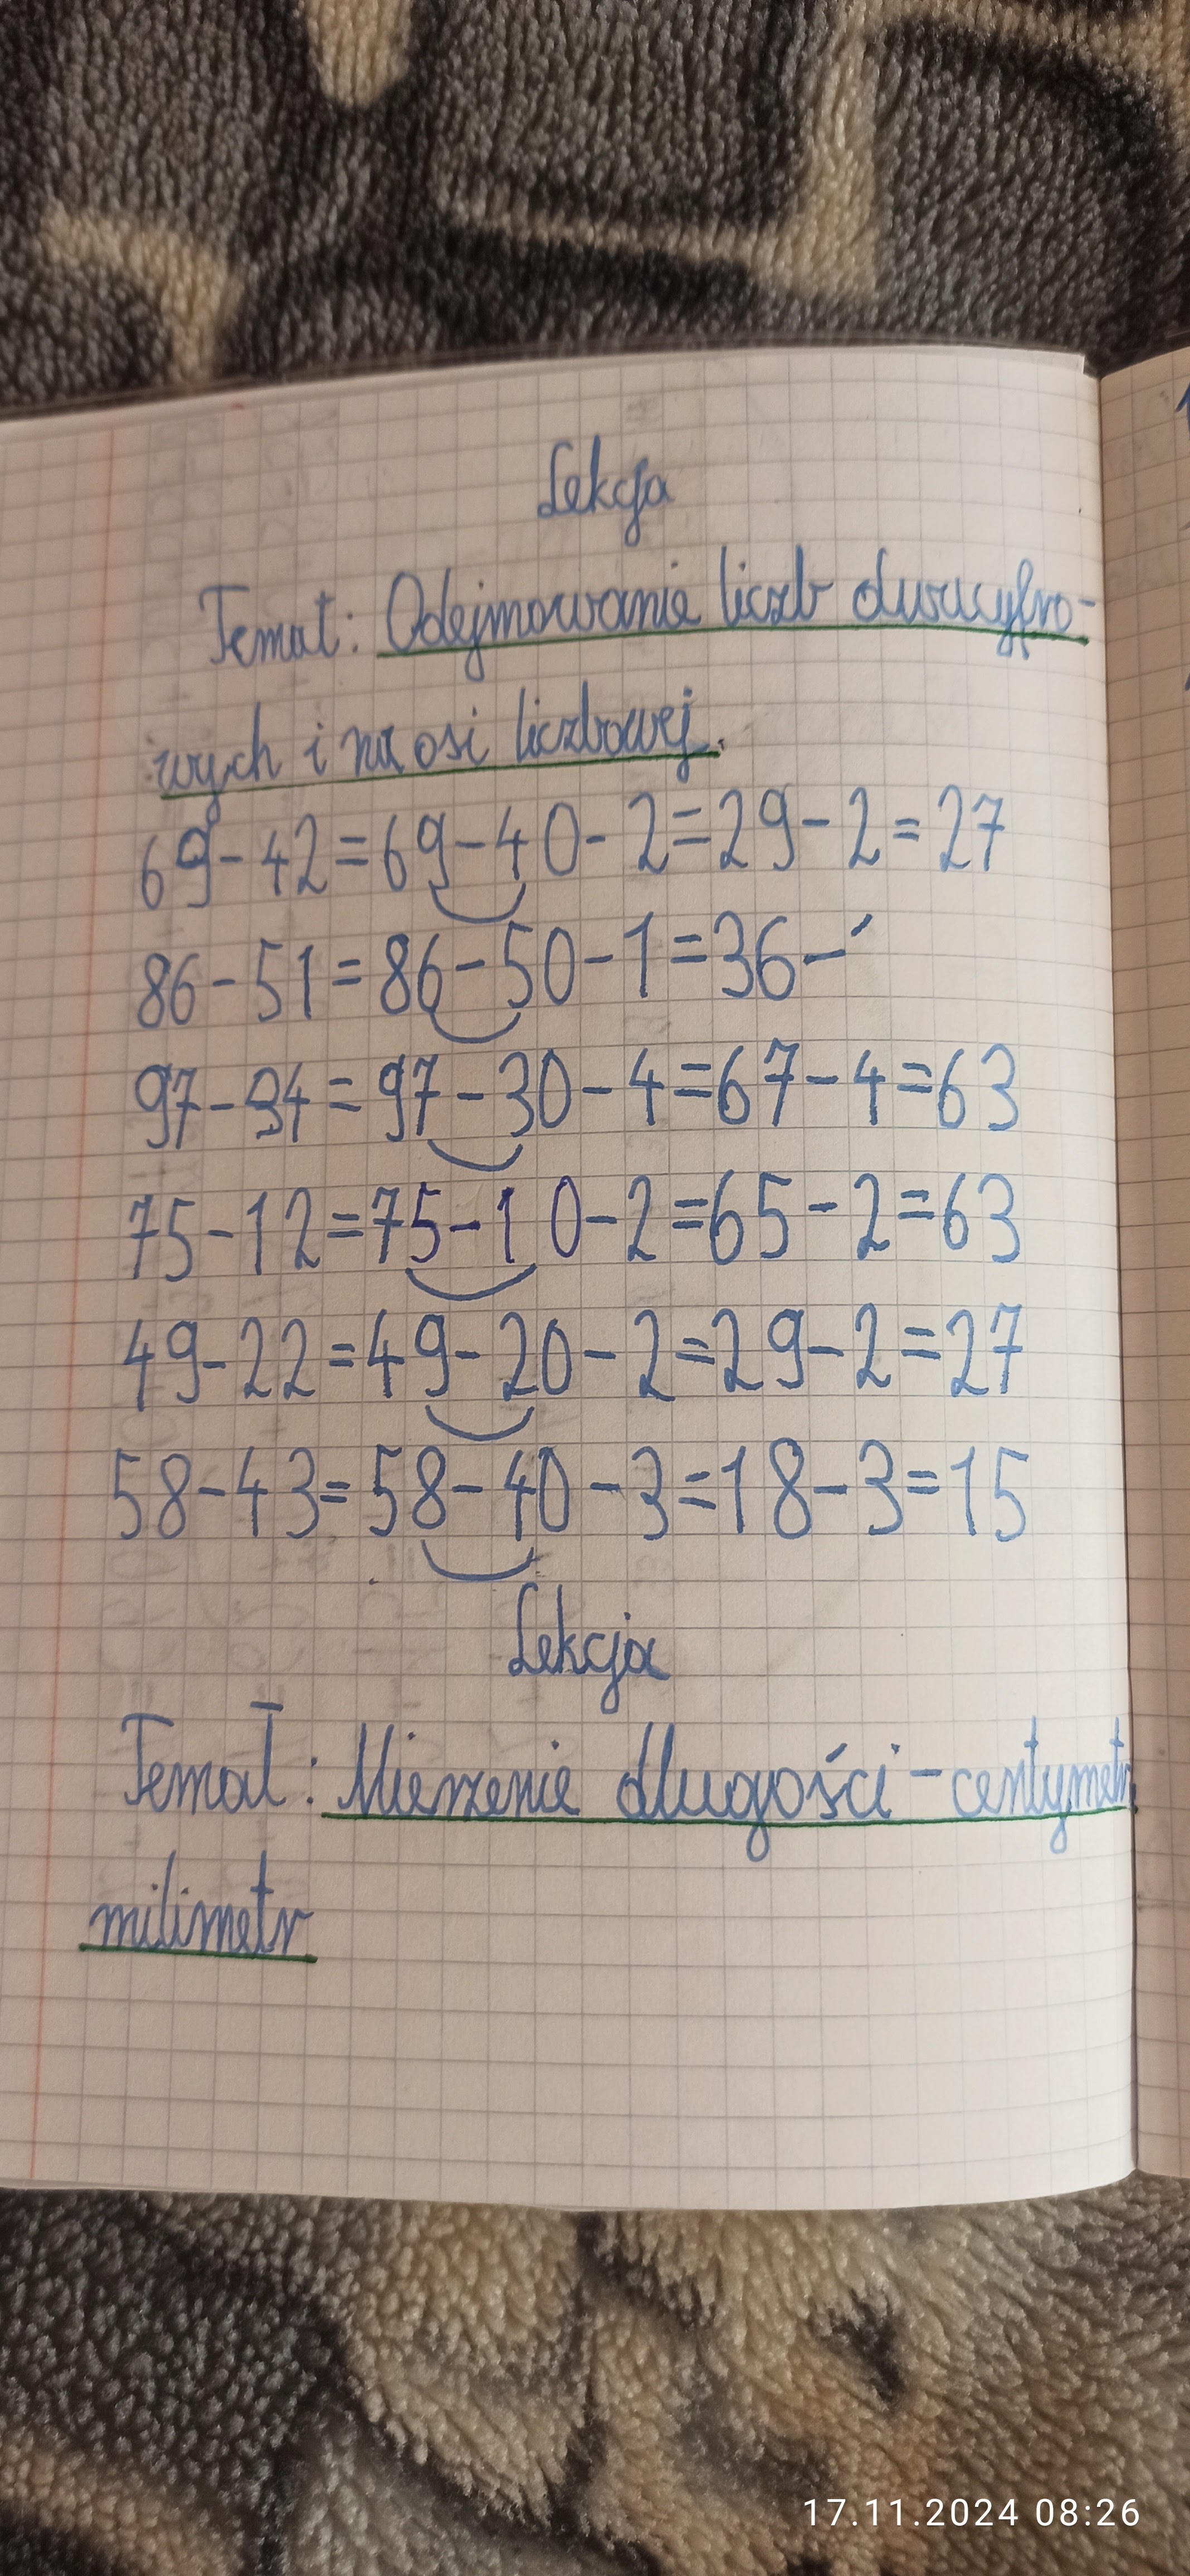 Lekcja
Temat: Odejmowanie liczb dwucyfro-
wych i na osi liczbowej.
69-42=69-40-2=29-2=27
86-51=86-50-1=36-
97-34=97-30-4=67-4=63
75-12=75-10-2=65-2=63
49-22=49-20-2=29-2=27
58-43=58-40-3=18-3=15
Lekcja
Temat: Mierzenie długości - centymetr,
milimetr
17.11.2024 08:26